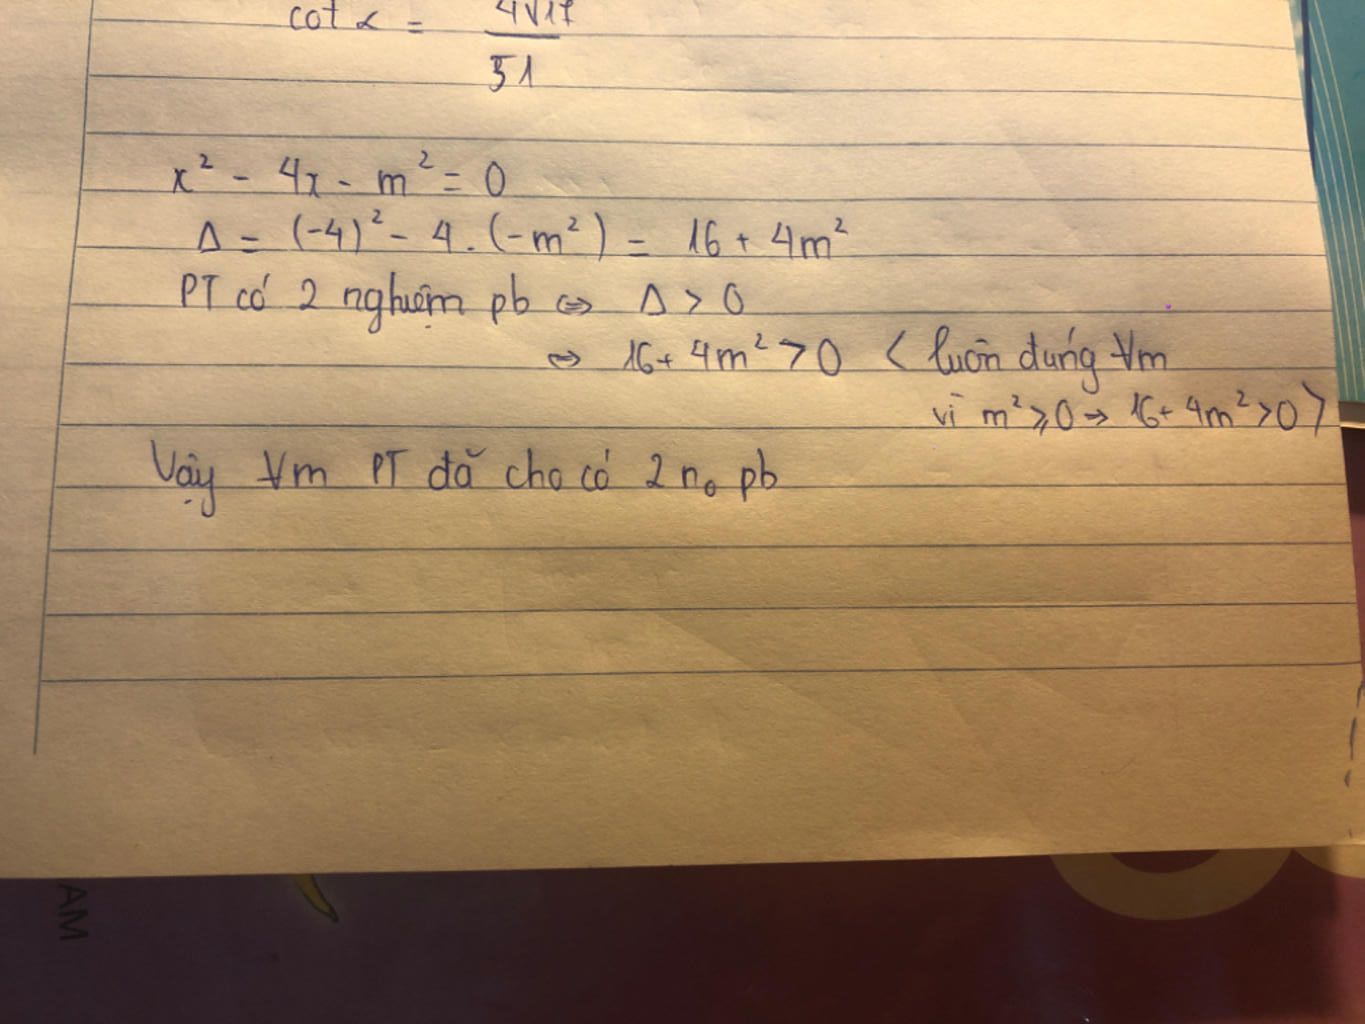 cot α = 4√17
51
x² - 4x - m² = 0
Δ = (-4)² - 4.(-m²) = 16 + 4m²
PT có 2 nghiệm pb ⇔ Δ > 0
⇔ 16+ 4m² > 0 < luôn đúng ∀m
vì m² ≥ 0 → 16+ 4m² > 0 >
Vậy ∀m PT đã cho có 2 n₀ pb
AM